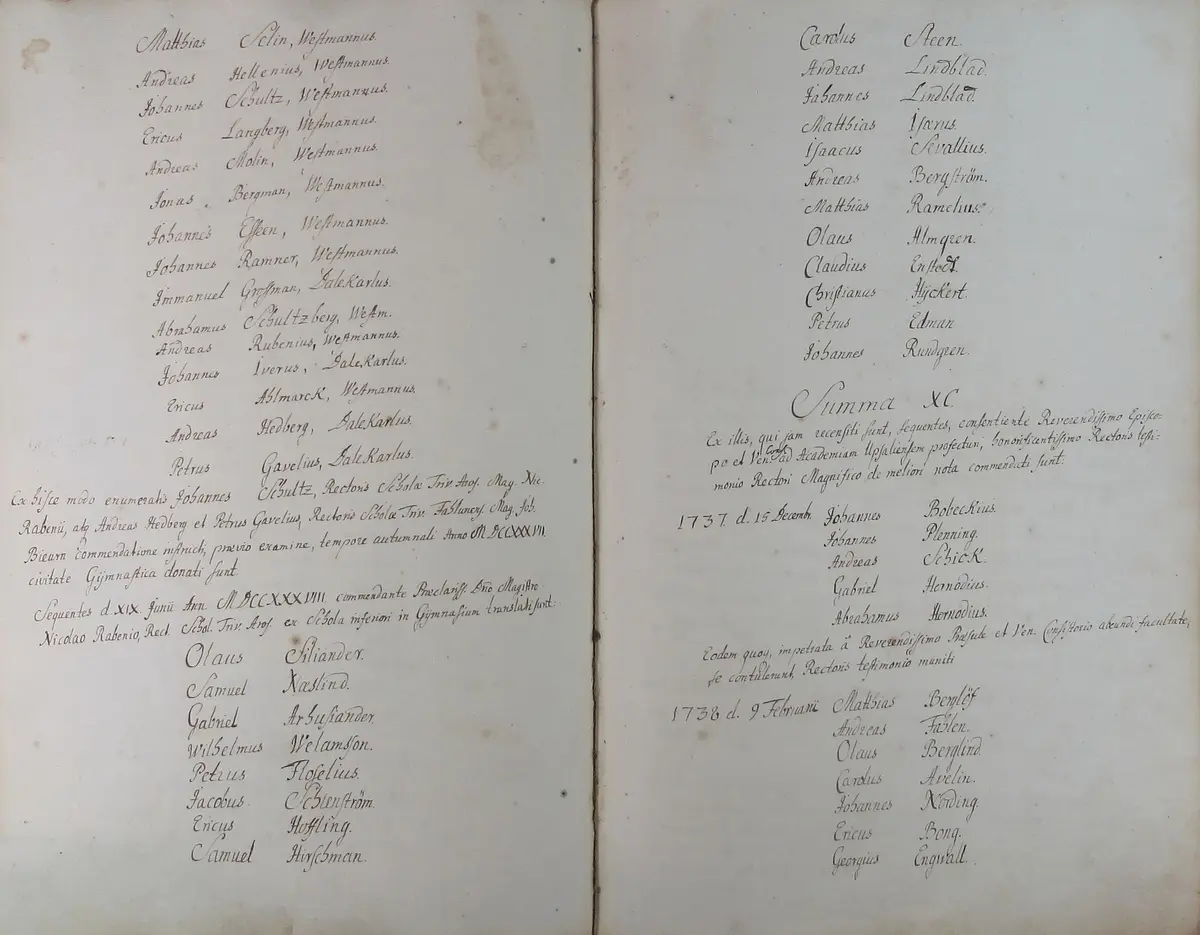 Matthias Selin, Westmannus.
Andreas Hellenius, Westmannus.
Johannes Schultz, Westmannus.
Ericus Langberg, Westmannus.
Andreas Molin, Westmannus.
Jonas Bergman, Westmannus.
Johannes Essen, Westmannus.
Johannes Ramner, Westmannus.
Immanuel Grossman, DaleKarlus.
Abrahamus Schultzberg, Westm.
Andreas Rubenius, Westmannus.
Johannes Iverus, DaleKarlus.
Ericus AhlmarcK, Westmannus.
Andreas Hedberg, DaleKarlus.
Petrus Gavelius, DaleKarlus.
Ex hisce modo enumeratis Johannes Schultz, Rectoris Scholæ Triv. Aros. Mag. Nic.
Rabenii, atq Andreas Hedberg et Petrus Gavelius, Rectoris Scholæ Triv. Fahlunens. Mag. Joh.
Bieurn commendatione instructi, prævio examine, tempore autumnali Anno MDCCXXXVII
civitate Gymnastica donati sunt.
Sequentes d. XIX. Junii Ann. MDCCXXXVIII commendante Præclariss. Dno Magistro
Nicolao Rabenio, Rect. Schol. Triv. Aros ex Schola inferiori in Gymnasium translati sunt.
Olaus Siliander.
Samuel Næslind.
Gabriel Arhusiander.
Wilhelmus Welamsson.
Petrus Floselius.
Jacobus Schienström.
Ericus Hoffling.
Samuel Hirschman.
Carolus Steen.
Andreas Lindblad.
Johannes Lindblad.
Matthias Isærus.
Isaacus Sevallius.
Andreas Bergström.
Matthias Ramelius.
Olaus Almgren.
Claudius Enstedt.
Christianus Hyckert.
Petrus Edman
Johannes Rundgren.
Summa XC.
Ex illis, qui jam recensiti sunt, sequentes, consentiente Reverendissimo Episco-
po et Ven. Cons. ad Academiam Upsaliensem profecturi, honorificentissimo Rectoris testi-
monio Rectori Magnifico de meliori nota commendati sunt.
1737. d. 15 Decembr. Johannes Bobeckius.
Johannes Plenning.
Andreas SchicK.
Gabriel Hernodius.
Abrahamus Hernodius.
Eodem quoq, impetrata â Reverendissimo Præsule et Ven. Consistorio abeundi facultate,
se contulerunt, Rectoris testimonio muniti
1738 d. 9 Februarii Matthias Berglöf
Andreas Fahlen.
Olaus Berglind
Carolus Avelin.
Johannes Nording.
Ericus Bong.
Georgius Engwall.